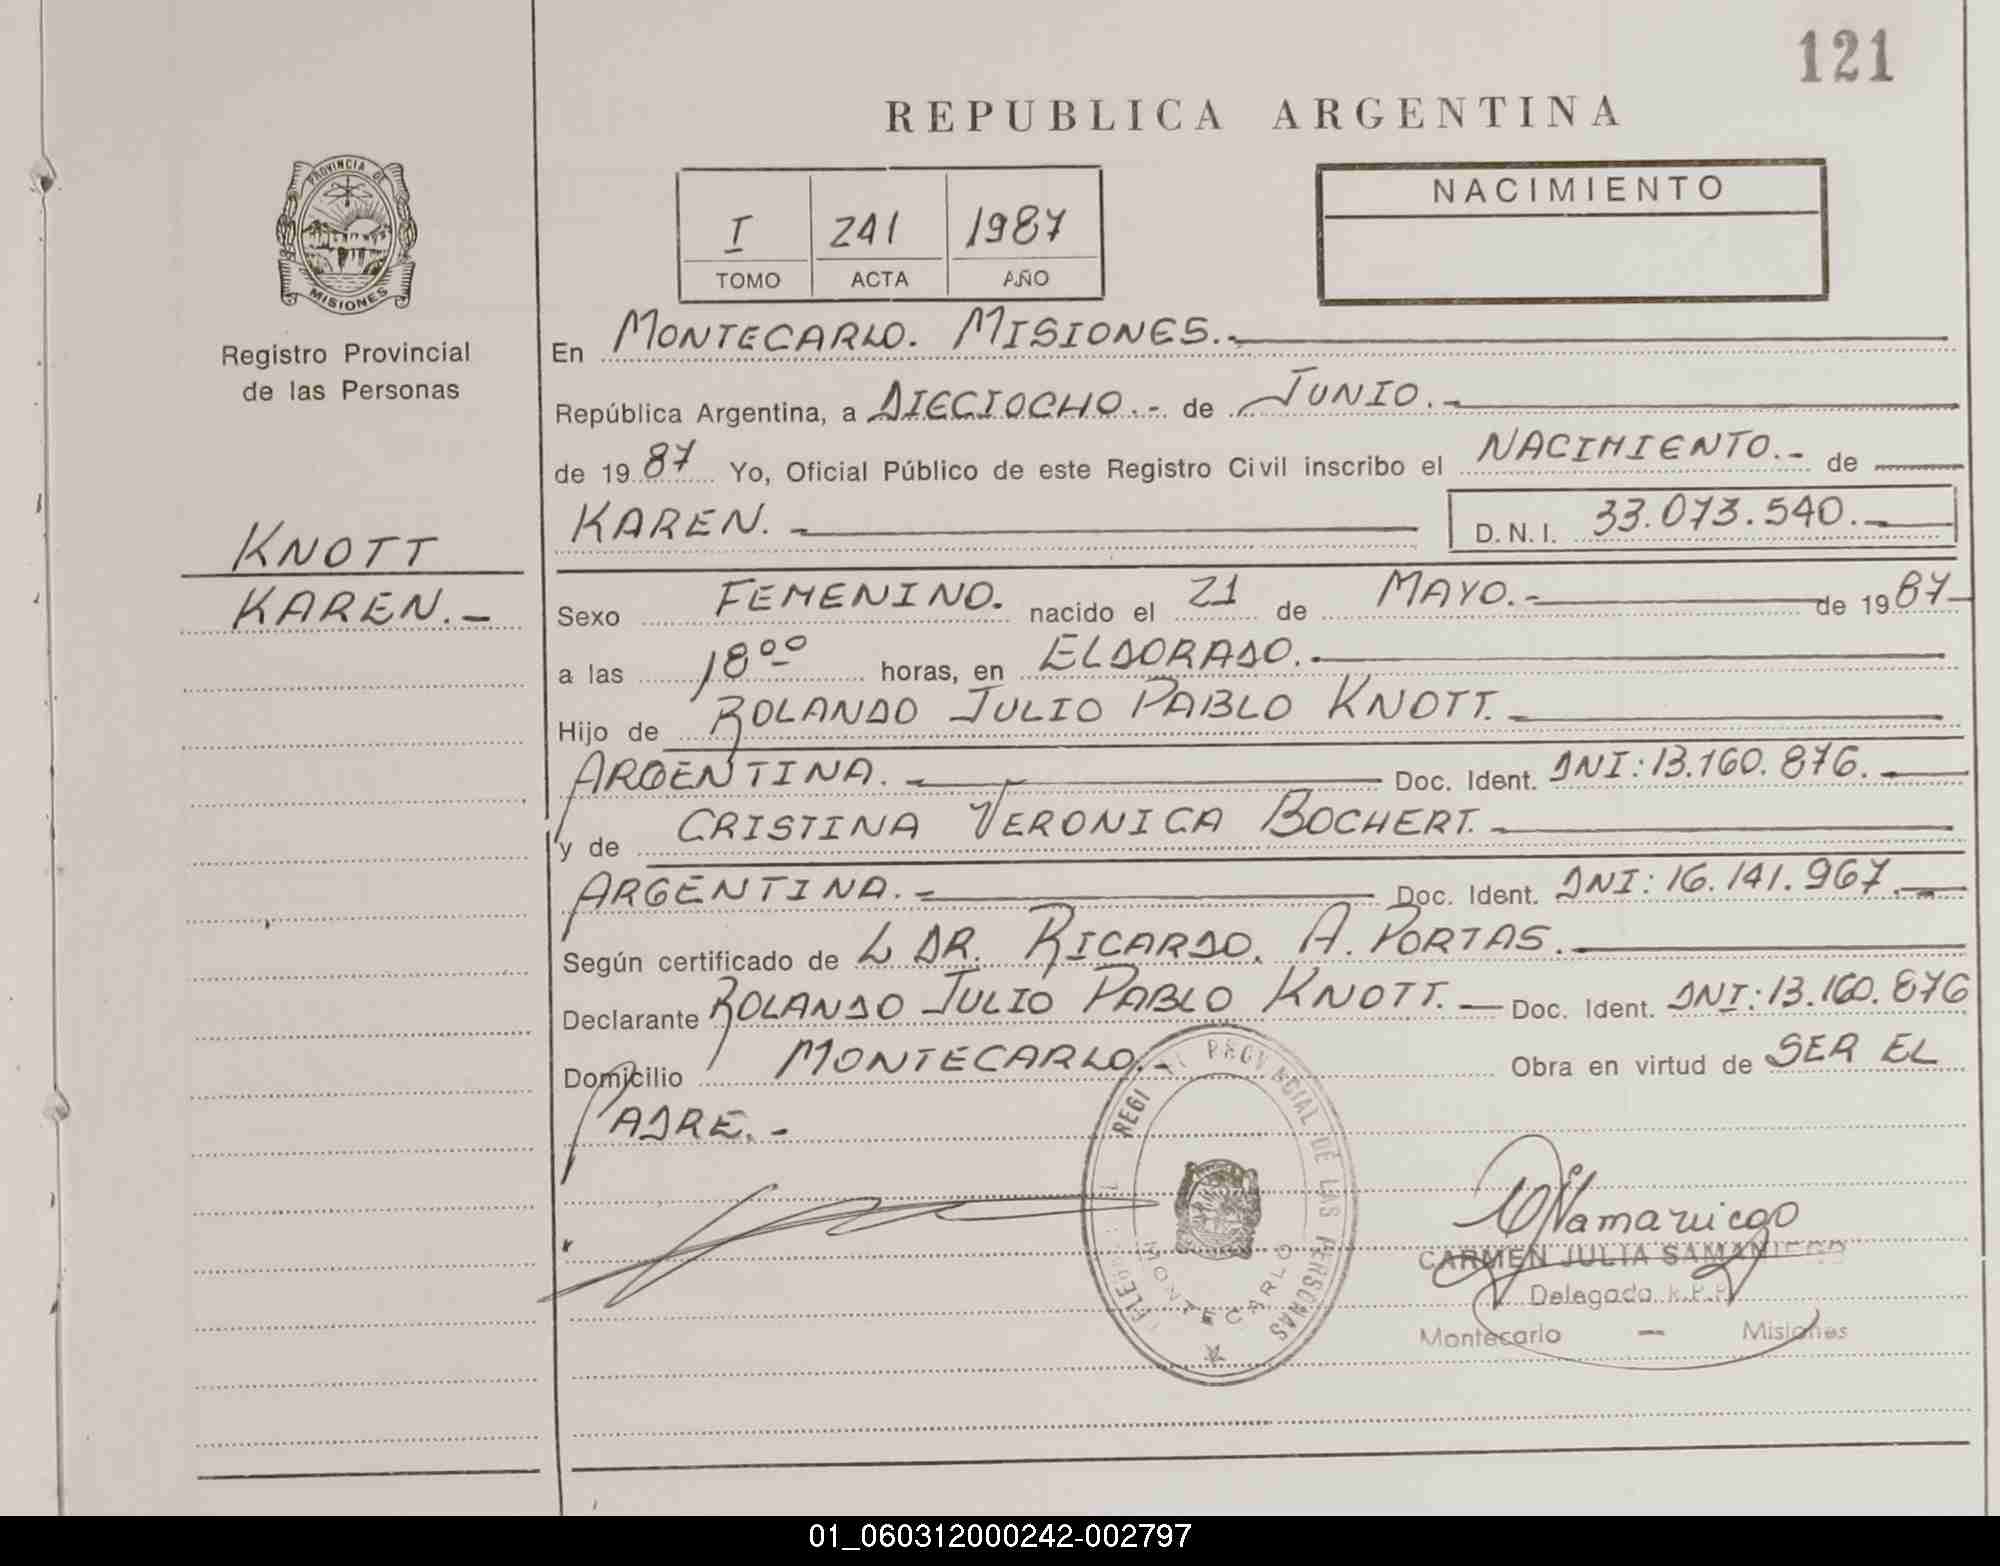 121
REPUBLICA ARGENTINA
PROVINCIA DE
MISIONES
Registro Provincial
de las Personas
I 241 1987
TOMO ACTA AÑO
NACIMIENTO
En MONTECARLO. MISIONES.-
República Argentina, a DIECIOCHO.- de JUNIO.-
de 1987 Yo, Oficial Público de este Registro Civil inscribo el NACIMIENTO.- de
KAREN. D.N.I. 33.073.540.-
KNOTT
KAREN.-
Sexo FEMENINO. nacido el 21 de MAYO.- de 1987
a las 18⁰⁰ horas, en ELDORADO.
Hijo de ROLANDO JULIO PABLO KNOTT.
ARGENTINA. Doc. Ident. DNI: 13.160.876.-
y de CRISTINA VERONICA BOCHERT.
ARGENTINA.- Doc. Ident. DNI: 16.141.967.-
Según certificado de L DR. RICARDO. A. PORTAS.
Declarante ROLANDO JULIO PABLO KNOTT. Doc. Ident. DNI: 13.160.876
Domicilio MONTECARLO.- Obra en virtud de SER EL
PADRE.-
PROVINCIAL DE LAS PERSONAS
MONTECARLO
CARMEN JULIA SAMANIEGO
Delegada R.P.P.
Montecarlo - Misiones
01_060312000242-002797